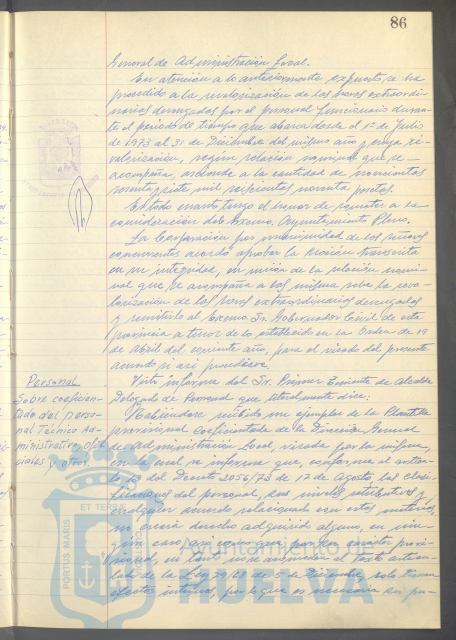 86
General de Administración Local.
En atención a lo anteriormente expuesto, se ha
procedido a la revalorización de las horas extraordi-
narias devengadas por el personal funcionario duran-
te el periodo de tiempo que abarca desde el 1º de Julio
de 1973 al 31 de Diciembre del mismo año y cuya re-
valorización, según relación nominal que se
acompaña, asciende a la cantidad de novecientas
noventa y siete mil seiscientas noventa pesetas.
Es todo cuanto tengo el honor de someter a la
consideración del Excmo. Ayuntamiento Pleno.
La Corporación por unanimidad de los señores
concurrentes acordó aprobar la moción transcrita
en su integridad, en unión de la relación nomi-
nal que se acompaña a la misma sobre la reva-
lorización de las horas extraordinarias devengadas
y remitirlo al Excmo. Sr. Gobernador Civil de esta
provincia a tenor de lo establecido en la Orden de 19
de Abril del corriente año, para el visado del presente
acuerdo si así procediese.
Personal
Sobre coeficien-
tado del perso-
nal Técnico Ad-
ministrativo, Ofi-
ciales y otros.
Visto informe del Sr. Primer Teniente de Alcalde
Delegado de Personal que literalmente dice:
"Habiéndose recibido un ejemplar de la Plantilla
provisional coeficientada de la Dirección General
de Administración Local, visada por la misma,
en la cual se informa que, conforme al artícu-
lo del Decreto 2056/73 de 17 de Agosto, las clasi-
ficaciones del personal, sus niveles retributivos y
cualquier acuerdo relacionado con estas materias,
no creará derecho adquirido alguno, en nin-
gún caso, así como que por ser carácter provi-
sional, en tanto no se apruebe el texto articu-
lado de la Ley de de Diciembre, solo tienen
efectos internos, por lo que es necesario su pu-
PORTUS MARIS
ET TERRAE
CUSTODIA
Ayuntamiento de
HUELVA